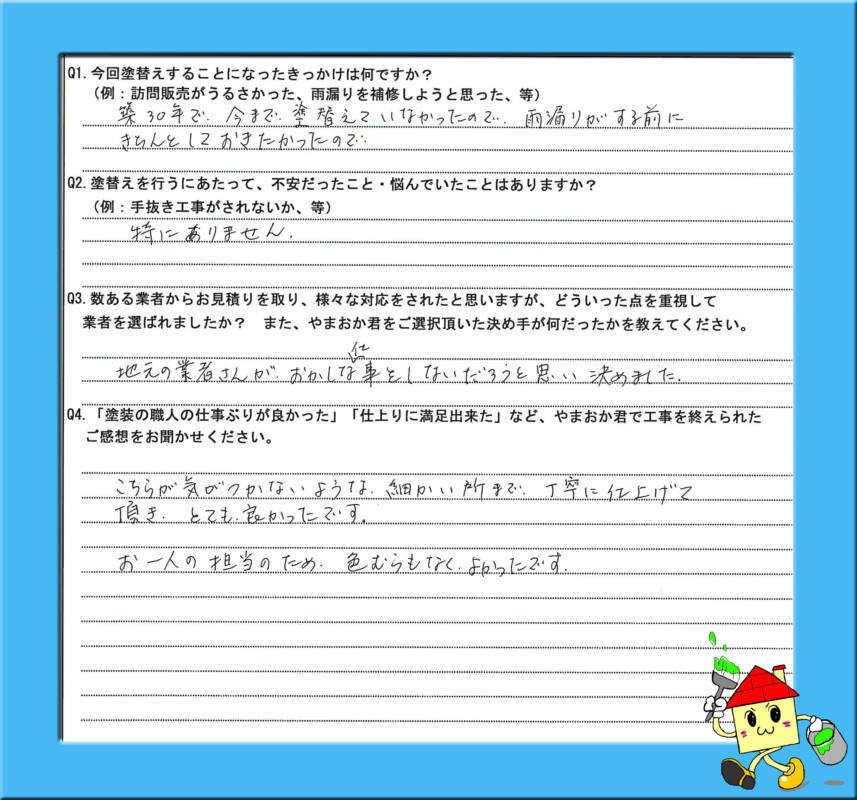 Q1.今回塗替えすることになったきっかけは何ですか？
（例：訪問販売がうるさかった、雨漏りを補修しようと思った、等）
築30年で、今まで、塗替えていなかったので、雨漏りがする前に
きちんとしておきたかったので
Q2.塗替えを行うにあたって、不安だったこと・悩んでいたことはありますか？
（例：手抜き工事がされないか、等）
特にありません.
Q3.数ある業者からお見積りを取り、様々な対応をされたと思いますが、どういった点を重視して
業者を選ばれましたか？　また、やまおか君をご選択頂いた決め手が何だったかを教えてください。
地元の業者さんが、おかしな仕事をしないだろうと思い決めました.
Q4.「塗装の職人の仕事ぶりが良かった」「仕上りに満足出来た」など、やまおか君で工事を終えられた
ご感想をお聞かせください。
こちらが気がつかないような、細かい所まで、丁寧に仕上げて
頂き、とても良かったです。
お一人の担当のため、色むらもなく、よかったです.